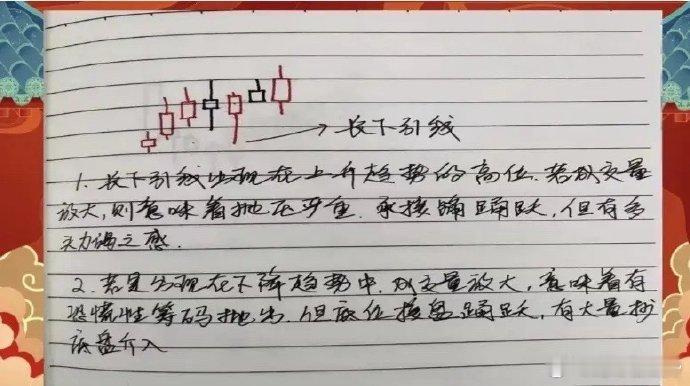 长下引线
1. 长下引线出现在上升趋势的高位，若成交量
放大，则意味着抛压严重，承接踊跃，但有多
头力竭之感.
2. 若是出现在下降趋势中，成交量放大，意味着有
恐慌性筹码抛出，但底位接盘踊跃，有大量抄
底盘介入